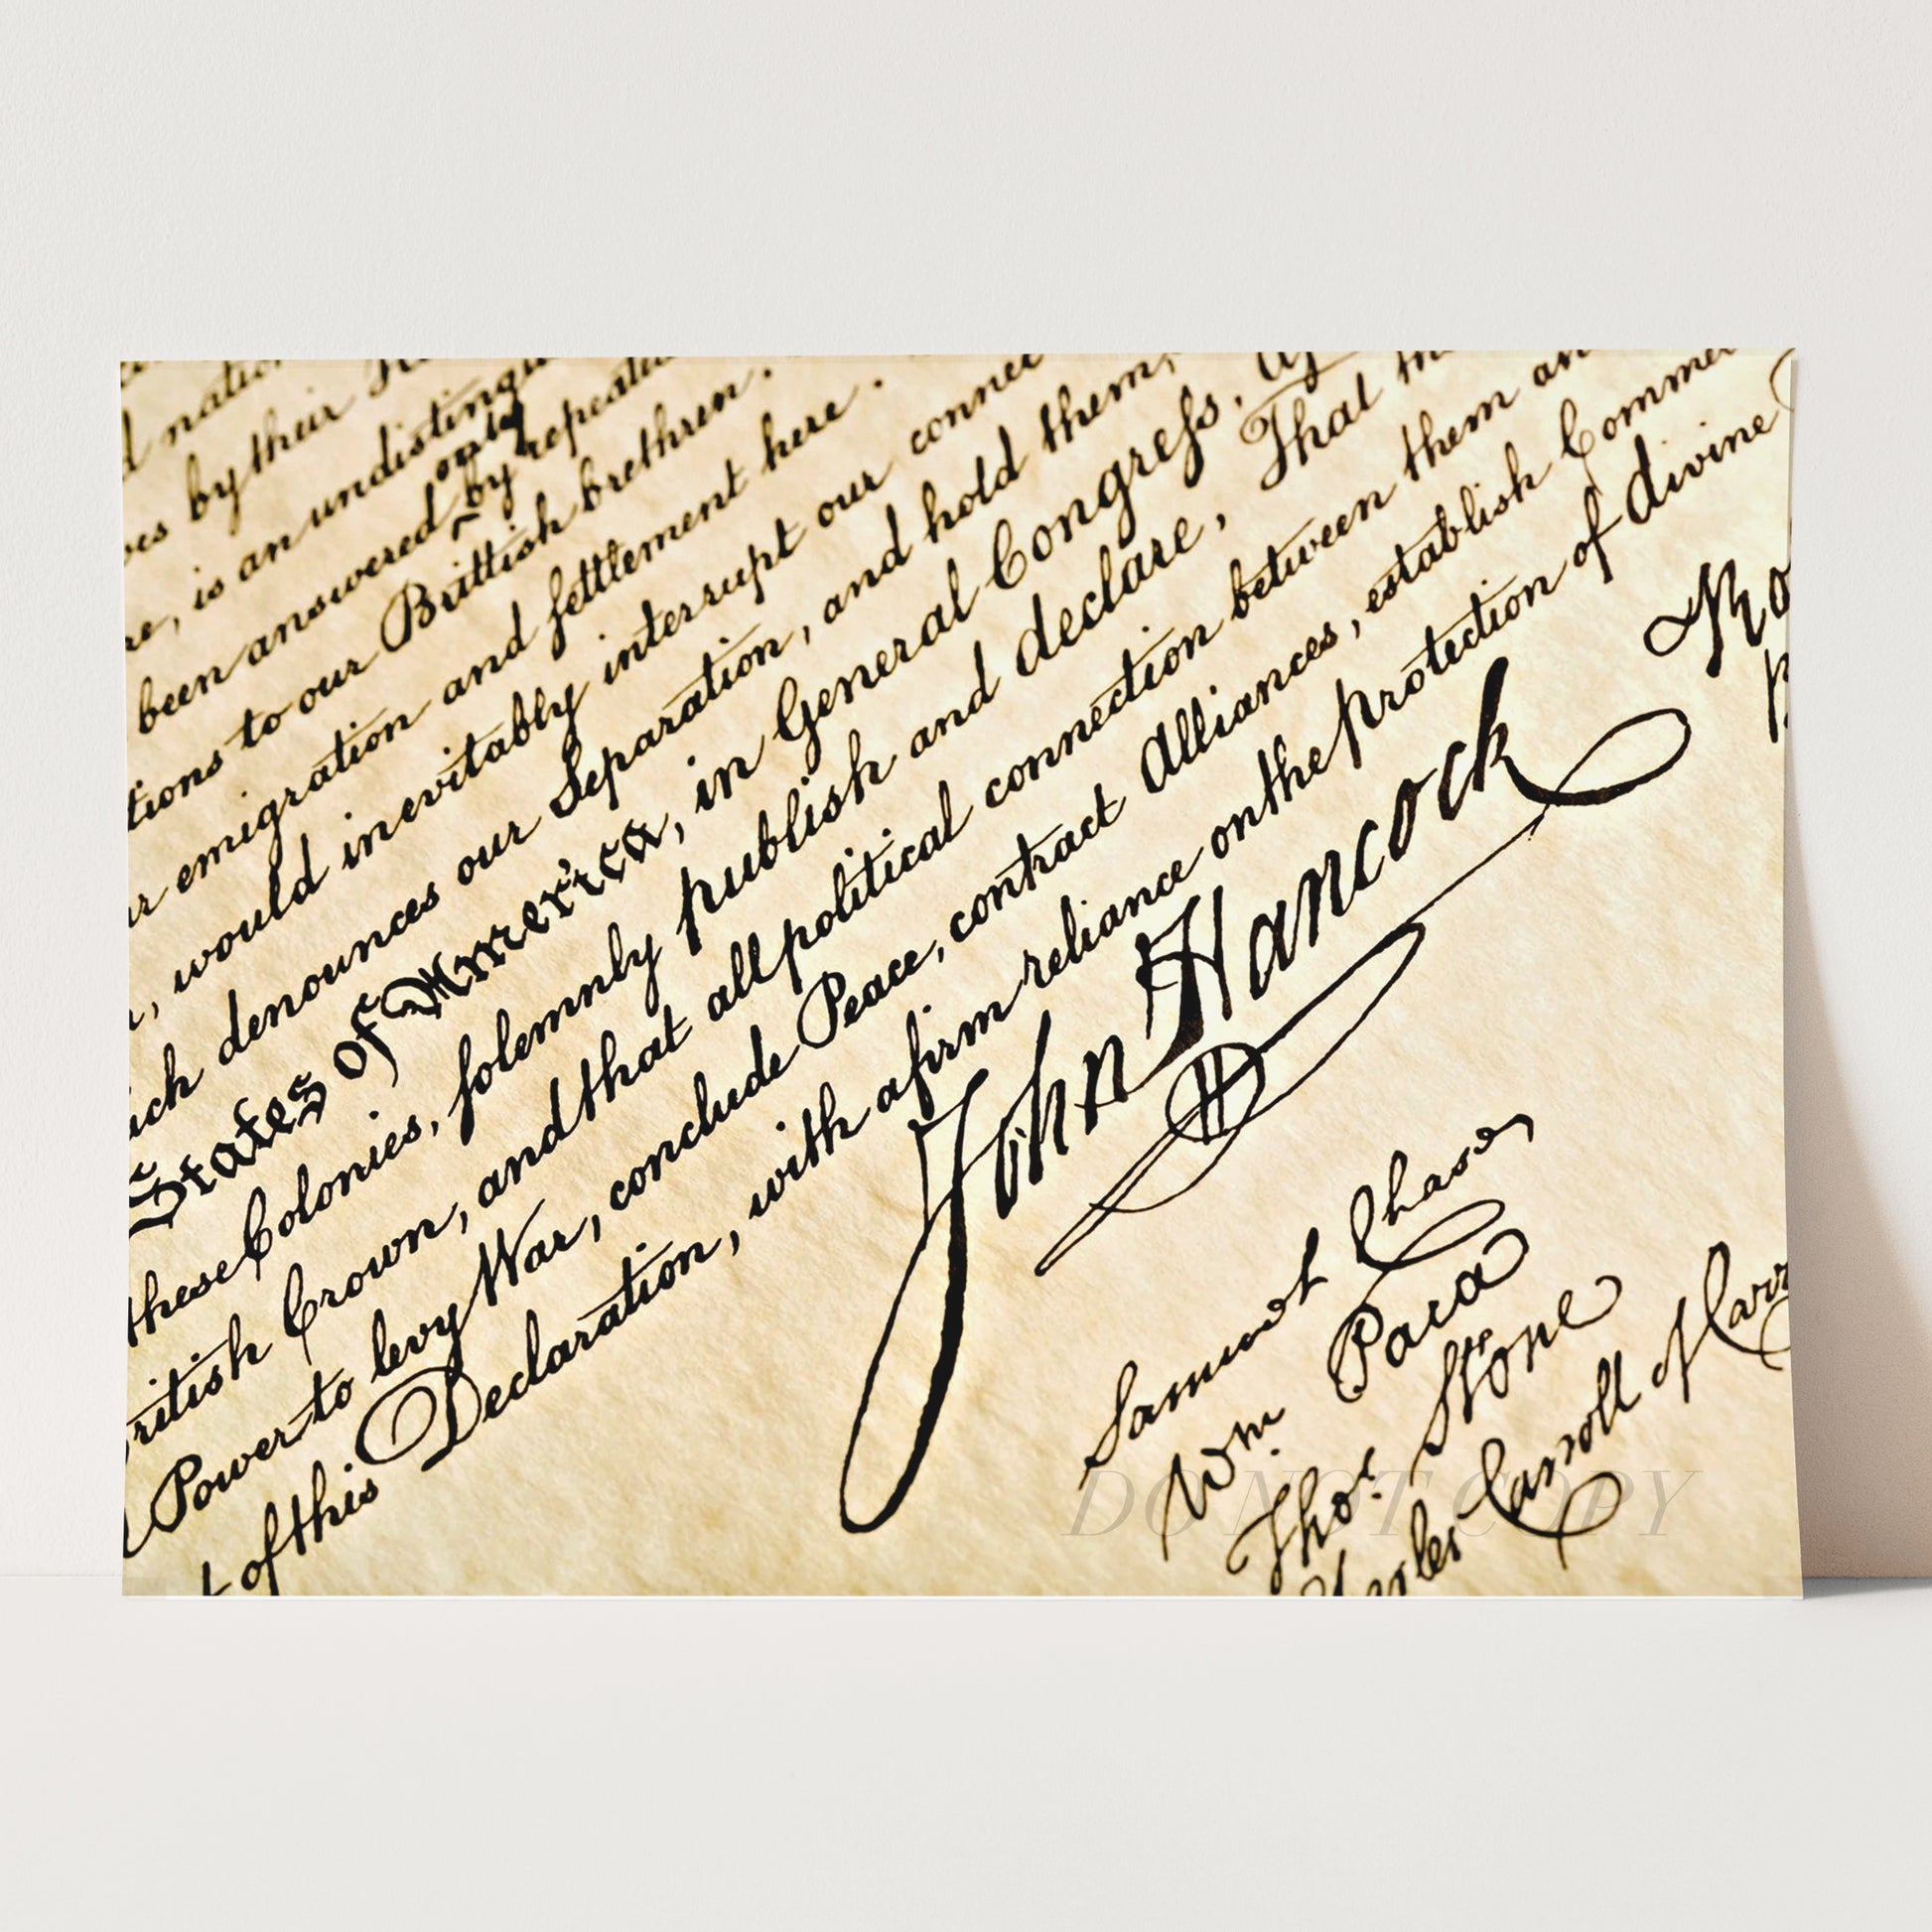 nation
by their
re, is an undisting
only
been answered by repeated
tions to our Brittish brethren.
emigration and settlement here.
, would inevitably interrupt our connec
uch denounces our Separation, and hold them,
States of America, in General Congress,
these Colonies, solemnly publish and declare, That
ritish Crown, and that all political connection between them an
Power to levy War, conclude Peace, contract Alliances, establish Commer
of this Declaration, with a firm reliance on the protection of divine
John Hancock
Samuel Chase
Wm. Paca
Thos. Stone
Charles Carroll of Carr
DO NOT COPY